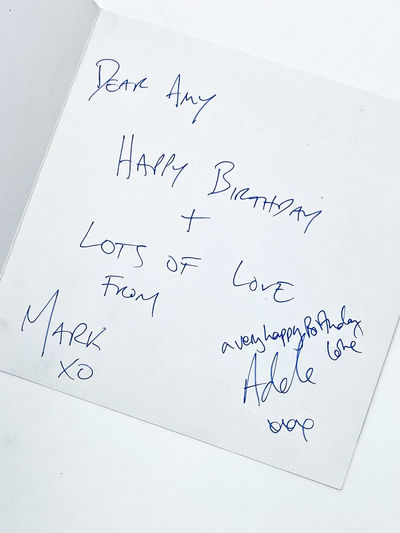 DEAR AMY
HAPPY BIRTHDAY
+
LOTS OF LOVE
FROM
MARK
XO
a very happy Birthday
love
Adele